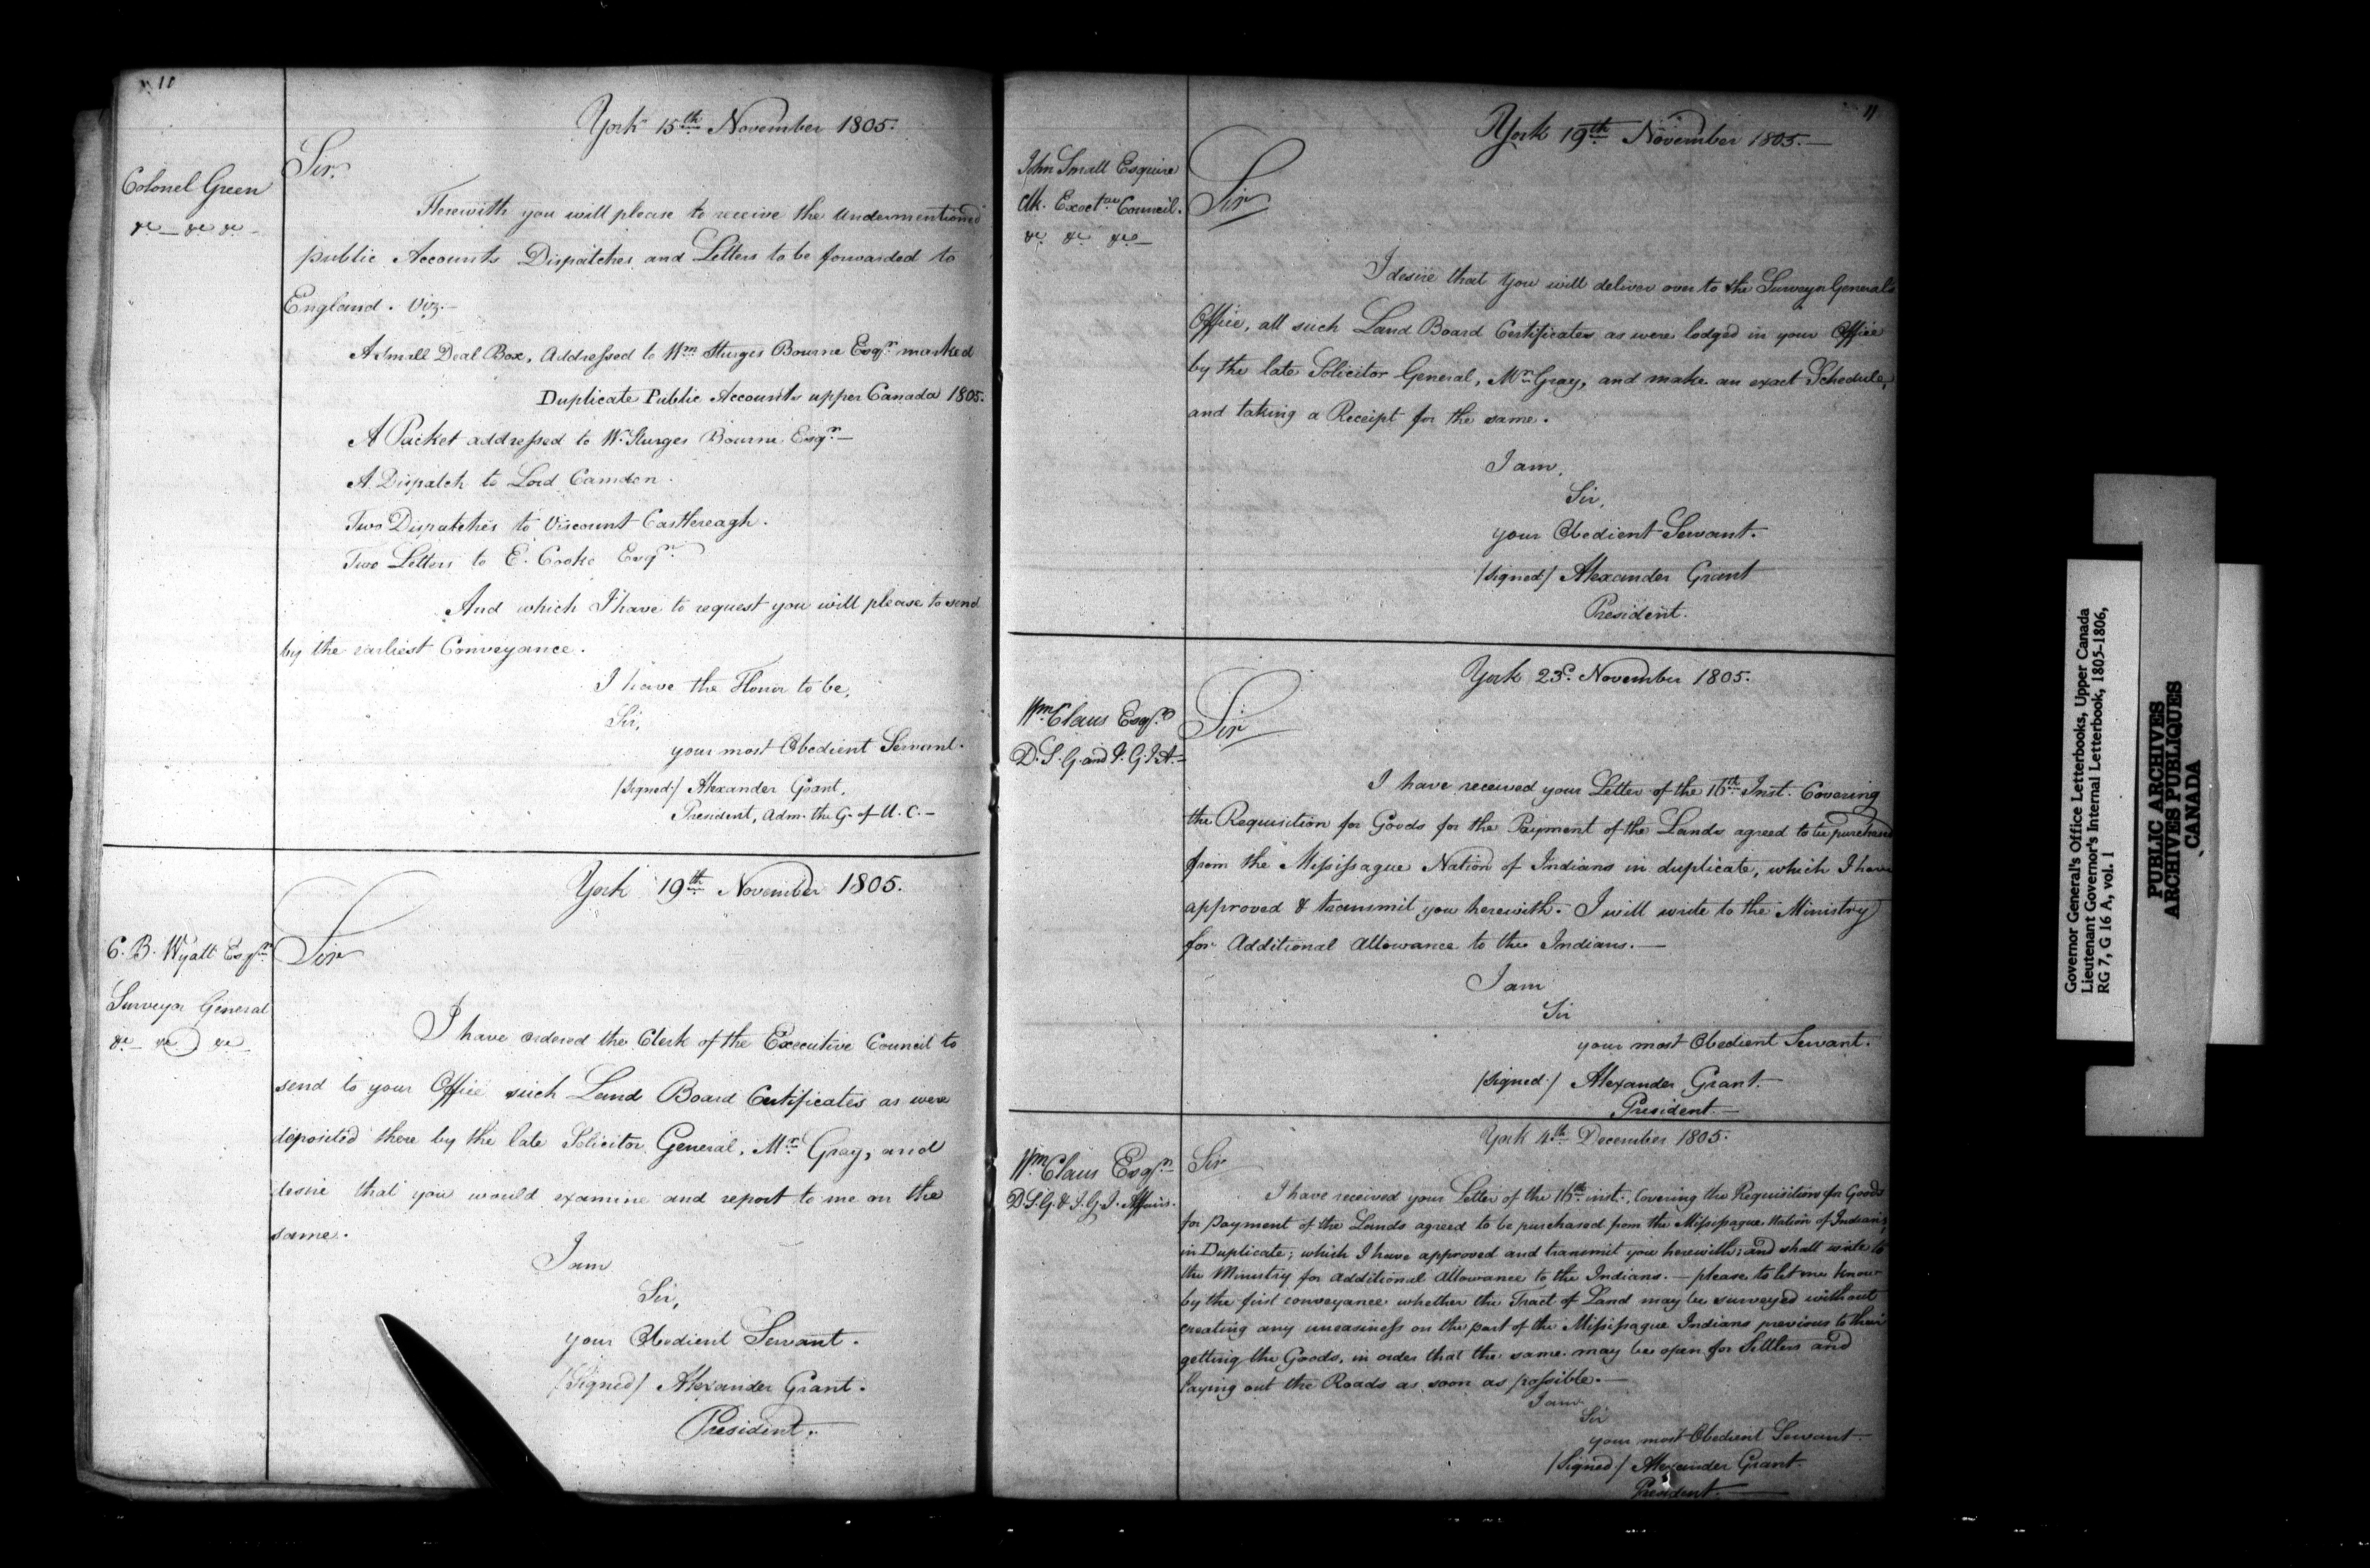 10
York 15th November 1805.
Colonel Green
&c — &c &c —
Sir,
Herewith you will please to receive the Undermentioned
public Accounts Dispatches and Letters to be forwarded to
England. Viz.—
A Small Deal Box, Addressed to Wm Sturges Bourne Esqr. marked
Duplicate Public Accounts upper Canada 1805.
A Packet addressed to W. Sturges Bourne Esqr.—
A Dispatch to Lord Camden.
Two Dispatches to Viscount Castlereagh.
Two Letters to E. Cooke Esqr.
And which I have to request you will please to send
by the earliest Conveyance.
I have the Honor to be,
Sir,
your most Obedient Servant.
/Signed/ Alexander Grant,
President, Adm. the G. of U. C.—
York 19th November 1805.
C. B. Wyatt Esqr.
Surveyor General
&c — &c &c —
Sir
I have ordered the Clerk of the Executive Council to
send to your Office such Land Board Certificates as were
deposited there by the late Solicitor General, Mr. Gray, and
desire that you would examine and report to me on the
same.
I am
Sir,
your Obedient Servant.
/Signed/ Alexander Grant.
President.
11
York 19th November 1805.—
John Small Esquire
Clk. Exect.ve Council.
&c &c &c—
Sir
I desire that you will deliver over to the Surveyor General's
Office, all such Land Board Certificates as were lodged in your Office
by the late Solicitor General, Mr. Gray, and make an exact Schedule,
and taking a Receipt for the same.
I am,
Sir,
your Obedient Servant.
/Signed/ Alexander Grant
President.
York 23d. November 1805.
Wm. Claus Esqr.
D. S. G. and I. G. I. A.—
Sir
I have received your Letter of the 16th Inst. Covering
the Requisition for Goods for the Payment of the Lands agreed to be purchased
from the Missisague Nation of Indians in duplicate, which I have
approved & transmit you herewith. I will write to the Ministry
for Additional Allowance to the Indians.—
I am
Sir
your most Obedient Servant.
/Signed/ Alexander Grant.—
President—
York 4th December 1805.
Wm Claus Esqr.
D. S. G. & I. G. I. Affairs.
Sir
I have received your Letter of the 16th inst., Covering the Requisition for Goods
for payment of the Lands agreed to be purchased from the Missisague Nation of Indians,
in Duplicate; which I have approved and transmit you herewith; and shall write to
the Ministry for Additional Allowance to the Indians.— please to let me know
by the first conveyance whether the Tract of Land may be surveyed without
creating any uneasiness on the part of the Missisague Indians previous to their
getting the Goods, in order that the same may be open for Settlers and
laying out the Roads as soon as possible.—
I am
Sir
your most Obedient Servant
/Signed/ Alexander Grant.
President.—
Governor General's Office Letterbooks, Upper Canada
Lieutenant Governor's Internal Letterbook, 1805-1806,
RG 7, G 16 A, vol. 1
PUBLIC ARCHIVES
ARCHIVES PUBLIQUES
CANADA